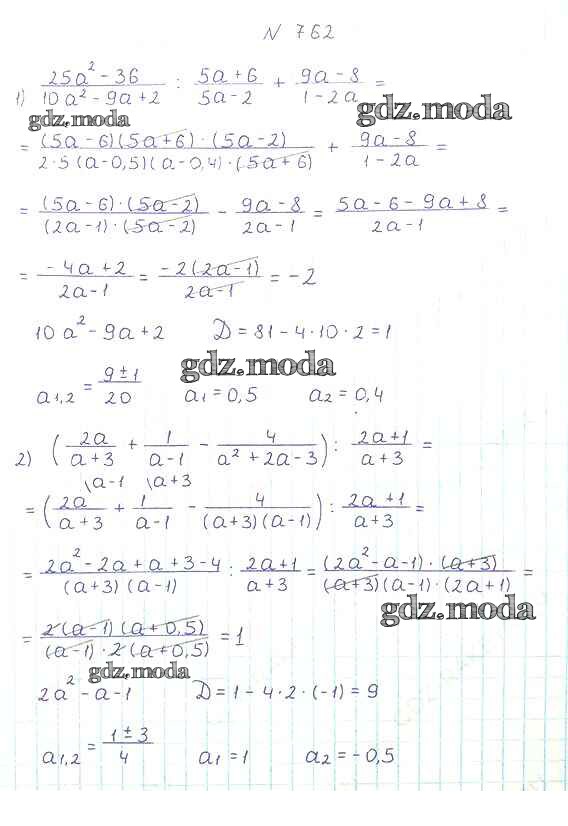 N 762
1) (25a² - 36)/(10a² - 9a + 2) : (5a + 6)/(5a - 2) + (9a - 8)/(1 - 2a) =
gdz.moda gdz.moda
= ((5a - 6)(5a + 6) · (5a - 2))/(2·5(a - 0,5)(a - 0,4) · (5a + 6)) + (9a - 8)/(1 - 2a) =
= ((5a - 6) · (5a - 2))/((2a - 1) · (5a - 2)) - (9a - 8)/(2a - 1) = (5a - 6 - 9a + 8)/(2a - 1) =
= (-4a + 2)/(2a - 1) = (-2(2a - 1))/(2a - 1) = -2
10a² - 9a + 2 D = 81 - 4·10·2 = 1
gdz.moda
a1,2 = (9 ± 1)/20 a1 = 0,5 a2 = 0,4
2) (2a/(a + 3) + 1/(a - 1) - 4/(a² + 2a - 3)) : (2a + 1)/(a + 3) =
\a-1 \a+3
= (2a/(a + 3) + 1/(a - 1) - 4/((a + 3)(a - 1))) : (2a + 1)/(a + 3) =
= (2a² - 2a + a + 3 - 4)/((a + 3)(a - 1)) : (2a + 1)/(a + 3) = ((2a² - a - 1) · (a + 3))/((a + 3)(a - 1) · (2a + 1)) =
gdz.moda
= (2(a - 1)(a + 0,5))/((a - 1) · 2(a + 0,5)) = 1
gdz.moda
2a² - a - 1 D = 1 - 4·2·(-1) = 9
a1,2 = (1 ± 3)/4 a1 = 1 a2 = -0,5